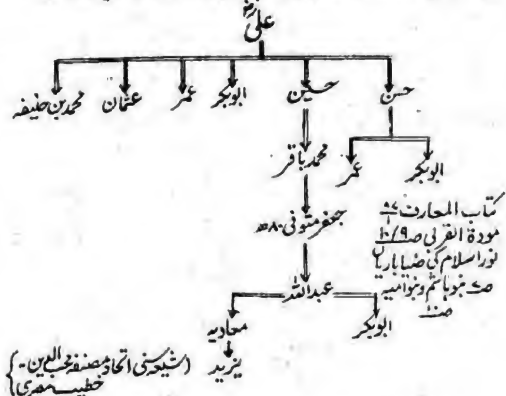 علیؓ
حسن حسین ابوبکر عمر عثمان محمد بن حنیفہ
ابوبکر عمر
محمد باقر
جعفر متوفی ۸۰ھ
عبداللہ
ابوبکر معاویہ
یزید
کتاب المعارف
مودۃ القربی
نور اسلام کی ضیا باریاں
بنو ہاشم و بنو امیہ
(شیعہ سنی اتحاد مصنفہ محب الدین۔
خطیب مصری)